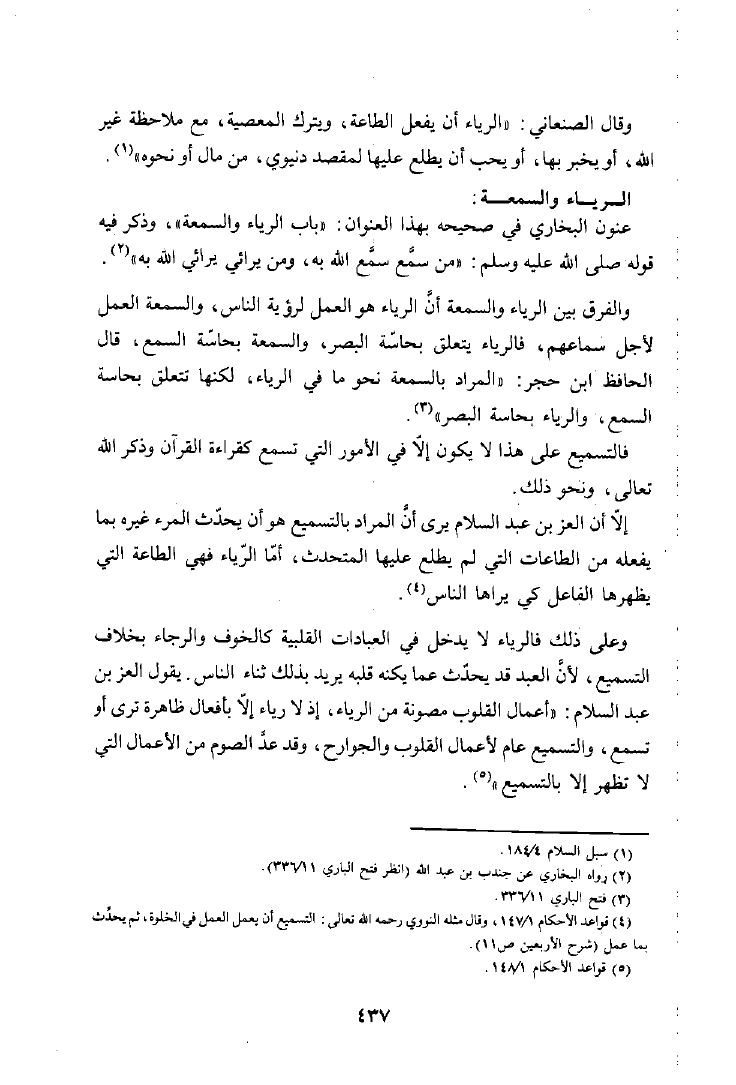 وقال الصنعاني: «الرياء أن يفعل الطاعة، ويترك المعصية، مع ملاحظة غير
الله، أو يخبر بها، أو يحب أن يطلع عليها لمقصد دنيوي، من مال أو نحوه»(١).
الـريــاء والسمعــة:
عنون البخاري في صحيحه بهذا العنوان: «باب الرياء والسمعة»، وذكر فيه
قوله صلى الله عليه وسلم: «من سمَّع سمَّع الله به، ومن يرائي يرائي الله به»(٢).
والفرق بين الرياء والسمعة أنَّ الرياء هو العمل لرؤية الناس، والسمعة العمل
لأجل سماعهم، فالرياء يتعلق بحاسّة البصر، والسمعة بحاسّة السمع، قال
الحافظ ابن حجر: «المراد بالسمعة نحو ما في الرياء، لكنها تتعلق بحاسة
السمع، والرياء بحاسة البصر»(٣).
فالتسميع على هذا لا يكون إلّا في الأمور التي تسمع كقراءة القرآن وذكر الله
تعالى، ونحو ذلك.
إلّا أن العز بن عبد السلام يرى أنَّ المراد بالتسميع هو أن يحدّث المرء غيره بما
يفعله من الطاعات التي لم يطلع عليها المتحدث، أمّا الرّياء فهي الطاعة التي
يظهرها الفاعل كي يراها الناس(٤).
وعلى ذلك فالرياء لا يدخل في العبادات القلبية كالخوف والرجاء بخلاف
التسميع، لأنَّ العبد قد يحدّث عما يكنه قلبه يريد بذلك ثناء الناس. يقول العز بن
عبد السلام: «أعمال القلوب مصونة من الرياء، إذ لا رياء إلّا بأفعال ظاهرة ترى أو
تسمع، والتسميع عام لأعمال القلوب والجوارح، وقد عدَّ الصوم من الأعمال التي
لا تظهر إلا بالتسميع»(٥).
(١) سبل السلام ١٨٤/٤.
(٢) رواه البخاري عن جندب بن عبد الله (انظر فتح الباري ٣٣٦/١١).
(٣) فتح الباري ٣٣٦/١١.
(٤) قواعد الأحكام ١٤٧/١، وقال مثله النووي رحمه الله تعالى: التسميع أن يعمل العمل في الخلوة، ثم يحدِّث
بما عمل (شرح الأربعين ص١١).
(٥) قواعد الأحكام ١٤٨/١.
٤٣٧